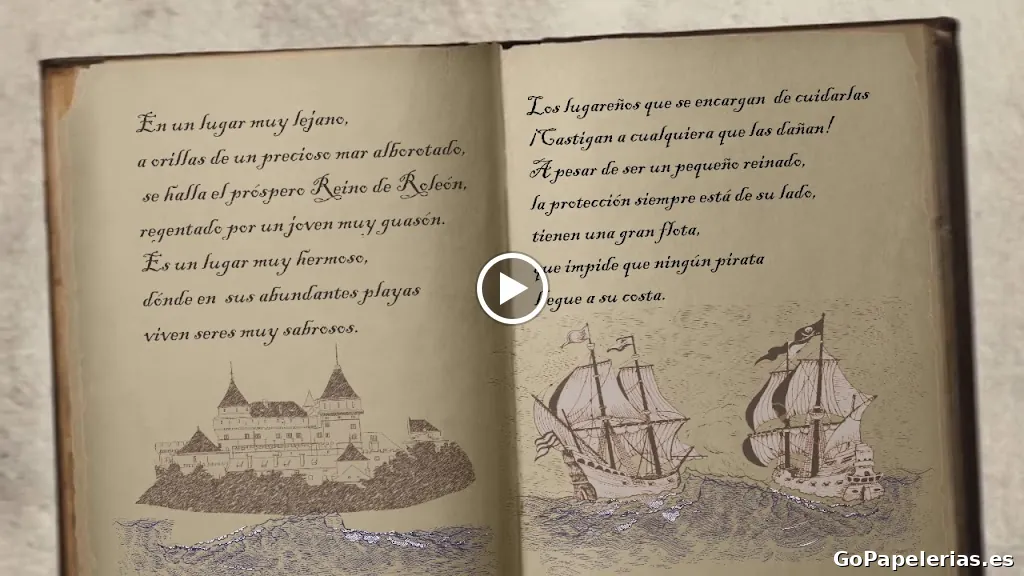 En un lugar muy lejano,
a orillas de un precioso mar alborotado,
se halla el próspero Reino de Roleón,
regentado por un joven muy guasón.
Es un lugar muy hermoso,
dónde en sus abundantes playas
viven seres muy sabrosos.
Los lugareños que se encargan de cuidarlas
¡Castigan a cualquiera que las dañan!
A pesar de ser un pequeño reinado,
la protección siempre está de su lado,
tienen una gran flota,
que impide que ningún pirata
llegue a su costa.
GoPapelerias.es